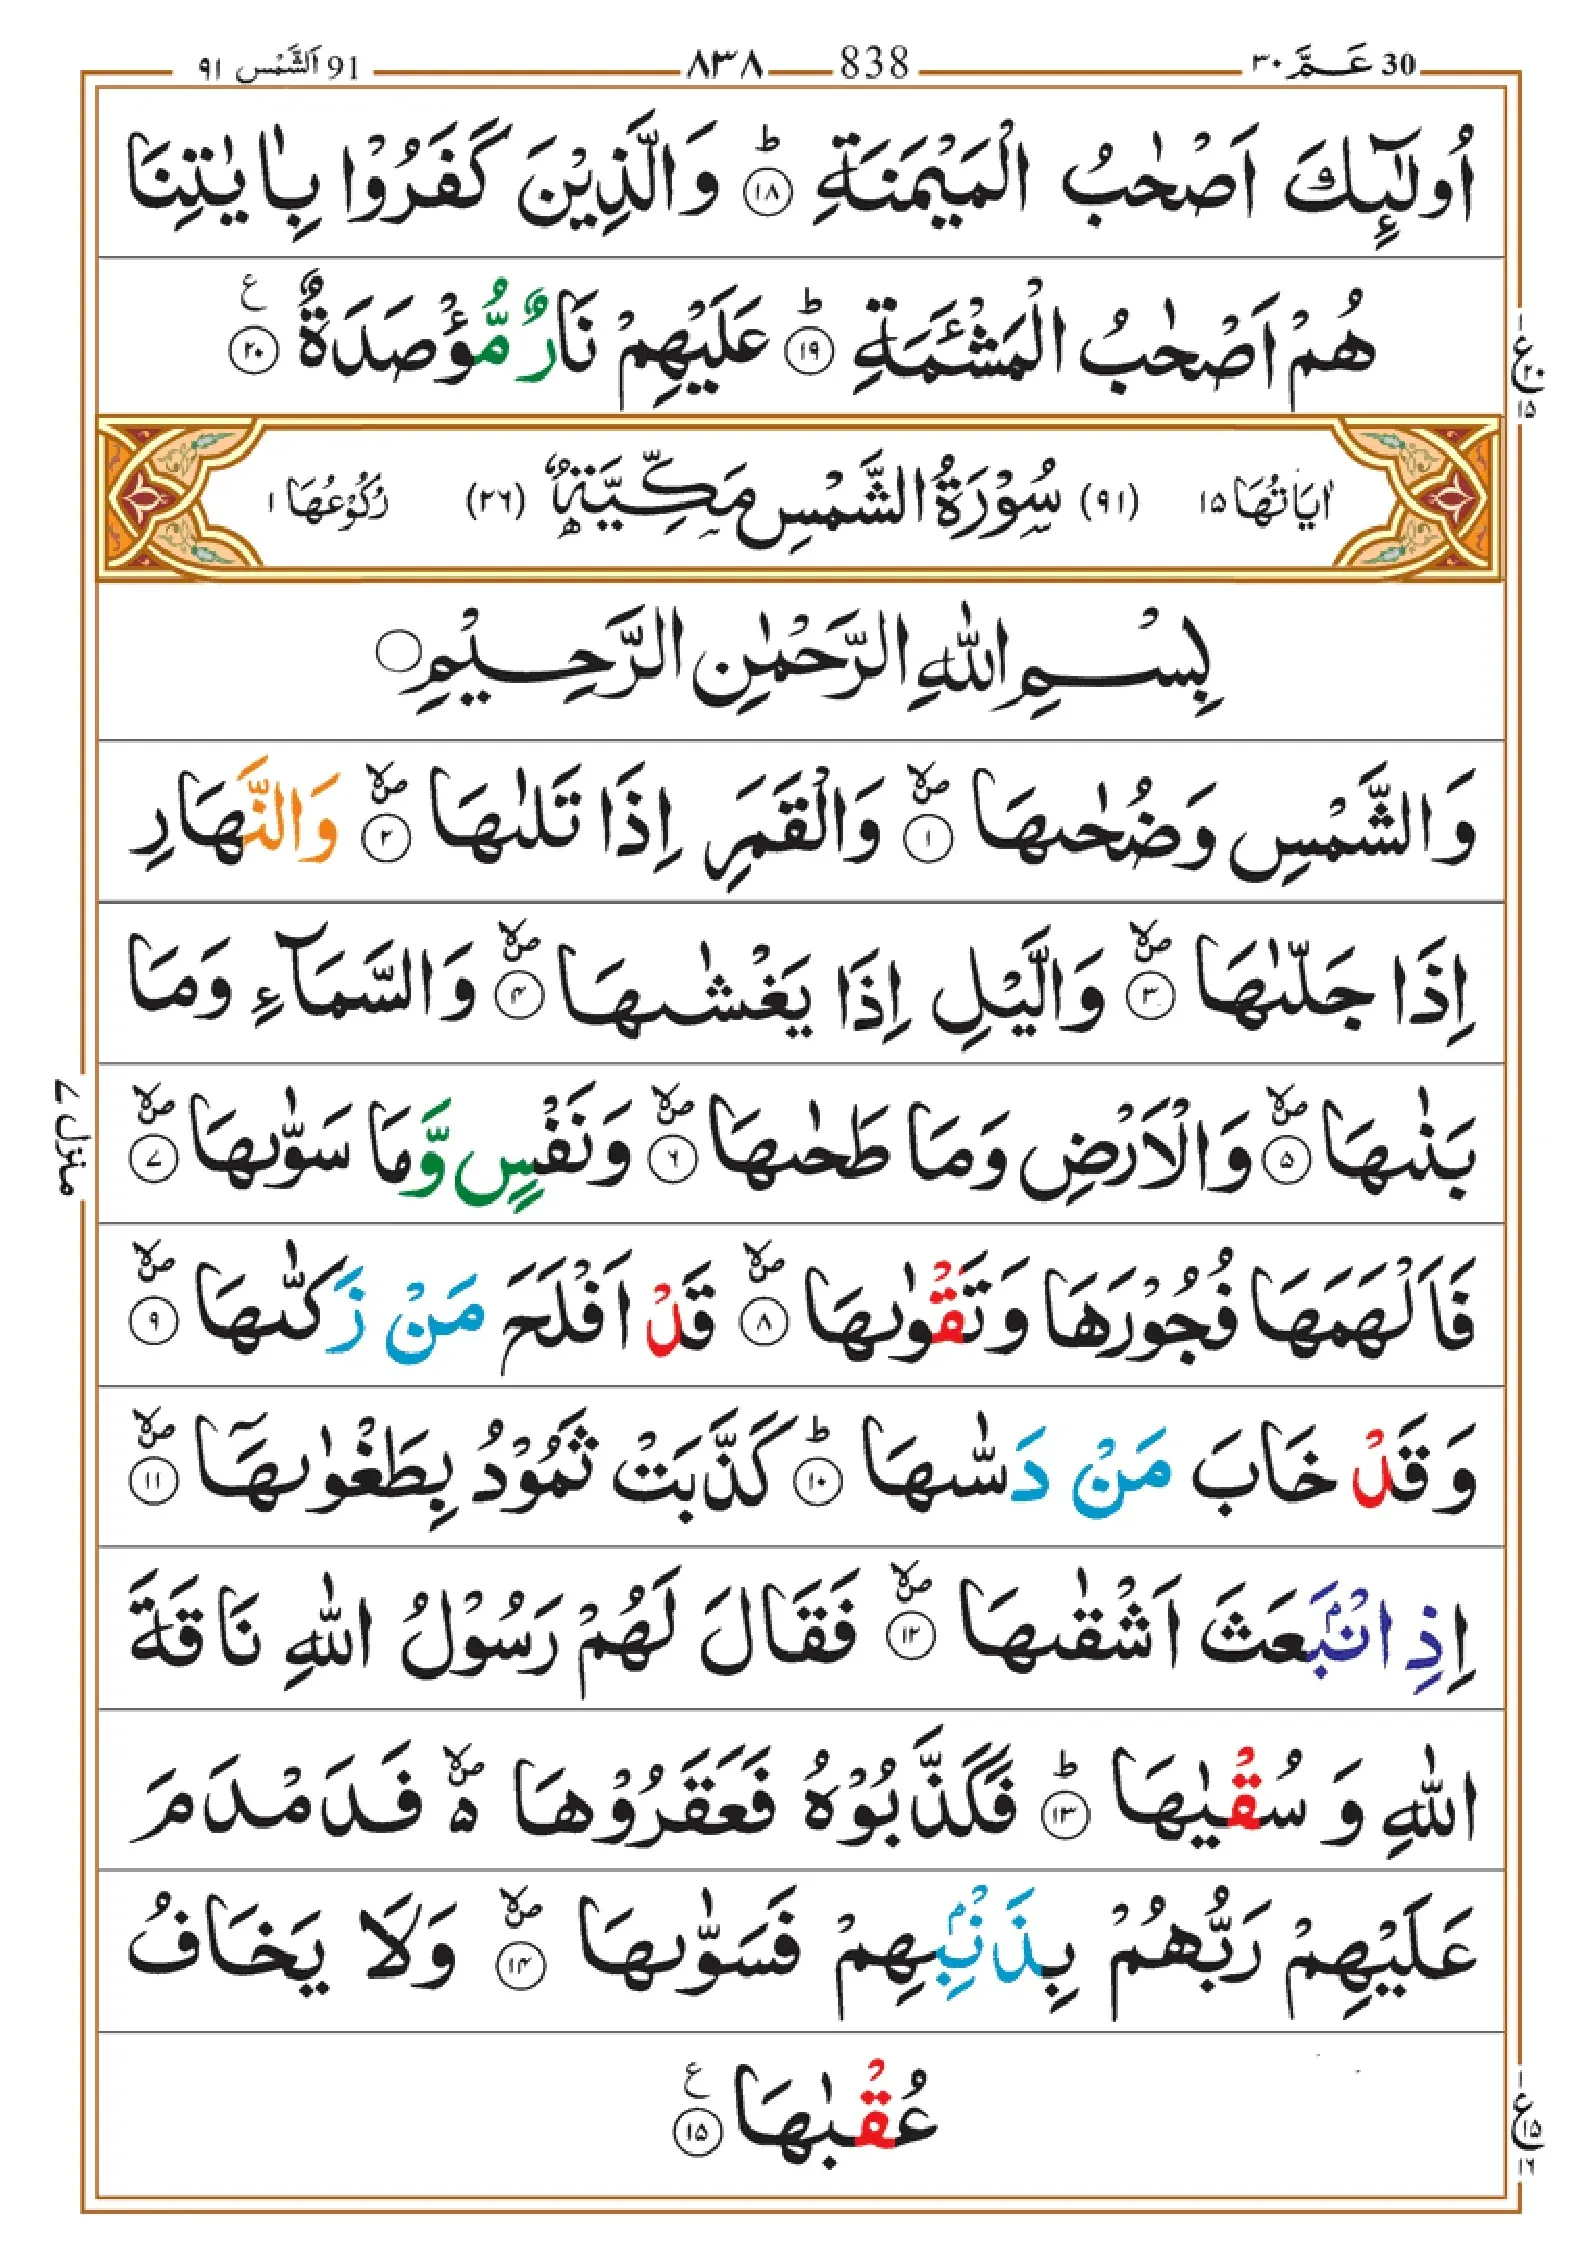 30 عَـمَّ ٣٠ 838 ٨٣٨ 91 اَلشَّمْس ٩١
اُولٰٓئِكَ اَصْحٰبُ الْمَيْمَنَةِ ؕ ١٨ وَالَّذِيْنَ كَفَرُوْا بِاٰيٰتِنَا
هُمْ اَصْحٰبُ الْمَشْـَٔمَةِ ؕ ١٩ عَلَيْهِمْ نَارٌ مُّؤْصَدَةٌ ٢٠ ع
ع ٢٠ ١٥
اٰيَاتُهَا ١٥ (٩١) سُوْرَةُ الشَّمْسِ مَكِّيَّةٌ (٢٦) رُكُوْعُهَا ١
بِسْمِ اللّٰهِ الرَّحْمٰنِ الرَّحِيْمِ
وَالشَّمْسِ وَضُحٰىهَا ۙ ١ وَالْقَمَرِ اِذَا تَلٰىهَا ۙ ٢ وَالنَّهَارِ
اِذَا جَلّٰىهَا ۙ ٣ وَالَّيْلِ اِذَا يَغْشٰىهَا ۙ ٤ وَالسَّمَآءِ وَمَا
بَنٰىهَا ۙ ٥ وَالْاَرْضِ وَمَا طَحٰىهَا ۙ ٦ وَنَفْسٍ وَّمَا سَوّٰىهَا ۙ ٧
منزل ٧
فَاَلْهَمَهَا فُجُوْرَهَا وَتَقْوٰىهَا ۙ ٨ قَدْ اَفْلَحَ مَنْ زَكّٰىهَا ۙ ٩
وَقَدْ خَابَ مَنْ دَسّٰىهَا ؕ ١٠ كَذَّبَتْ ثَمُوْدُ بِطَغْوٰىهَاۤ ۙ ١١
اِذِ انْۢبَعَثَ اَشْقٰىهَا ۙ ١٢ فَقَالَ لَهُمْ رَسُوْلُ اللّٰهِ نَاقَةَ
اللّٰهِ وَ سُقْيٰهَا ؕ ١٣ فَكَذَّبُوْهُ فَعَقَرُوْهَا ۙ۵ فَدَمْدَمَ
عَلَيْهِمْ رَبُّهُمْ بِذَنْۢبِهِمْ فَسَوّٰىهَا ۙ ١٤ وَلَا يَخَافُ
عُقْبٰهَا ١٥ ع
ع ١٥ ١٦